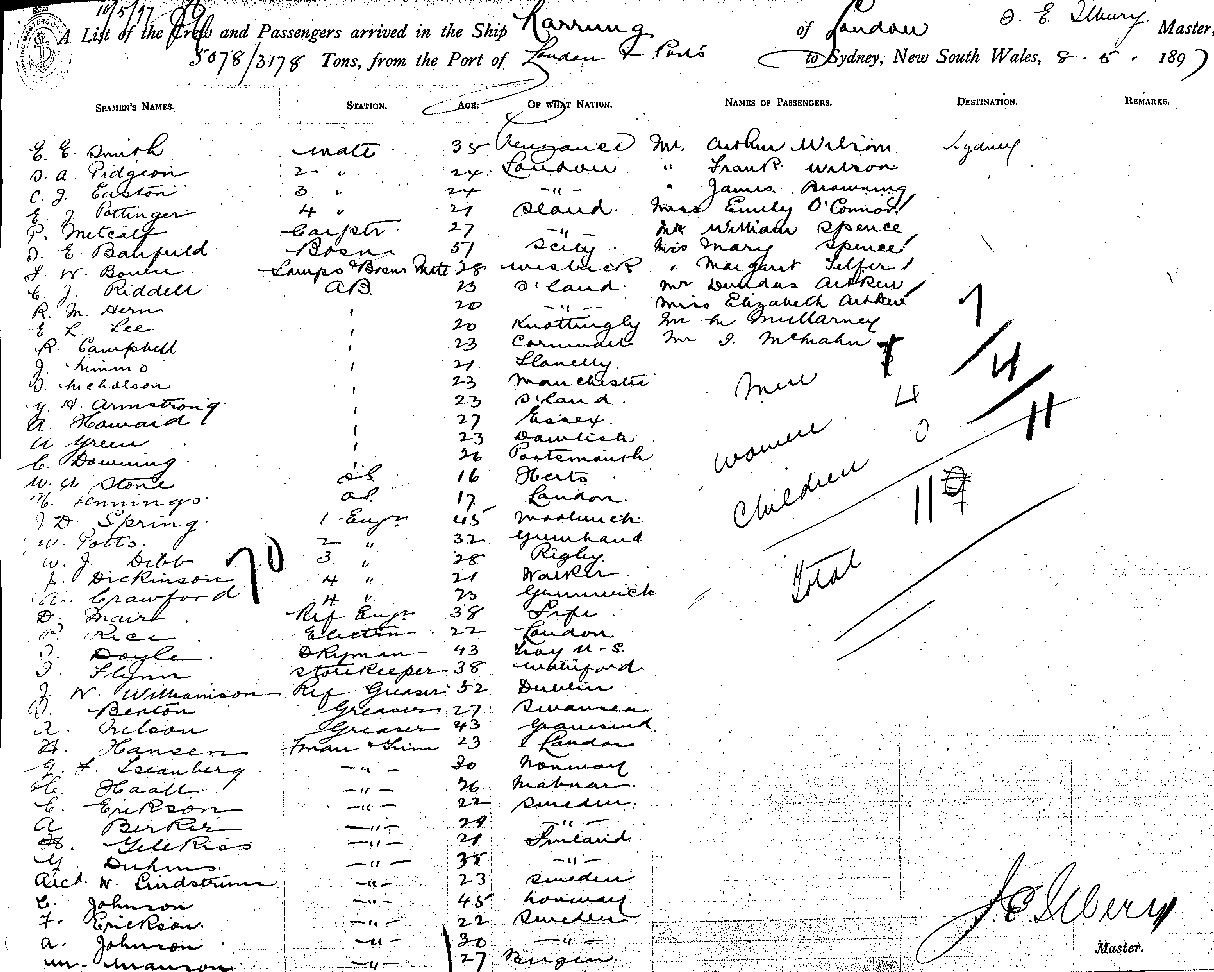 10/5/97
A List of the Crew and Passengers arrived in the Ship Karrung of London J. E. Ilbery Master,
5078/3178 Tons, from the Port of London & Ports to Sydney, New South Wales, 8 . 5 . 1897
SEAMEN'S NAMES. STATION. AGE. OF WHAT NATION. NAMES OF PASSENGERS. DESTINATION. REMARKS.
E. E. Smith Mate 35 Penzance Mr. Arthur Wilson Sydney
S. A. Pidgeon 2 " 24 London " Frank Wilson
C. J. Easton 3 " 24 -"- " James Browning
E. J. Pottinger 4 " 21 S'land Miss Emily O'Connor
P. Metcalf Carptr 27 -"- Mr William Spence
E. Banfield Bosn 51 Scilly Mrs Mary Spence
W. Bowen Lamps & Bosns Mate 28 Wisbeck " Margaret Telfer
C. J. Riddell AB 23 S'land Mr Dundas Aitken
R. M. Hern " 20 -"- Miss Elizabeth Aitken
E. L. Lee " 20 Knottingly Mr M. McMarney
R. Campbell " 23 Cornwall Mr J. McMahn
J. Nimmo " 21 Llanelly
Nicholson " 23 Manchester
H. Armstrong " 23 S'land
A. Howard " 27 Essex
A Green " 23 Dawlish
C. Downing " 26 Portsmouth
W. A Stone 16 Herts
Jennings 17 London
J. D. Spring 1 Engr 45 Woolwich
W. Potts 2 " 32 Greenhead
W. J. Dibb 3 " 28 Rigby
J. Dickinson 4 " 21 Walker
A. Crawford 4 " 23 Greenwich
D. Mair Ref Engr 38 Fife
P. Rice Electrn 22 London
Doyle DKyman 43 Troy U.S.
Flynn Storekeeper 38 Waterford
J. W. Williamson Ref Greaser 52 Dublin
Benton Greasers 27 Swansea
A. Nelson Greaser 43 Gravesend
H. Hansen Fman & Trim 23 London
G. F. Isenberg -"- 30 Norway
Haall -"- 26
C. Erikson -"- 22 Sweden
A Berker -"- 28 -"-
-"- 21 Finland
Duhms -"- 38 -"-
Aicd. W. Lindstrums -"- 23 Sweden
C. Johnson -"- 45 Norway
F. Erickson -"- 22 Sweden
A. Johnson -"- 30 -"-
-"- 27 Bergen
70
Men 7
Women 4
Children 0
Total 11
7/4/11
J. E. Ilbery
Master.